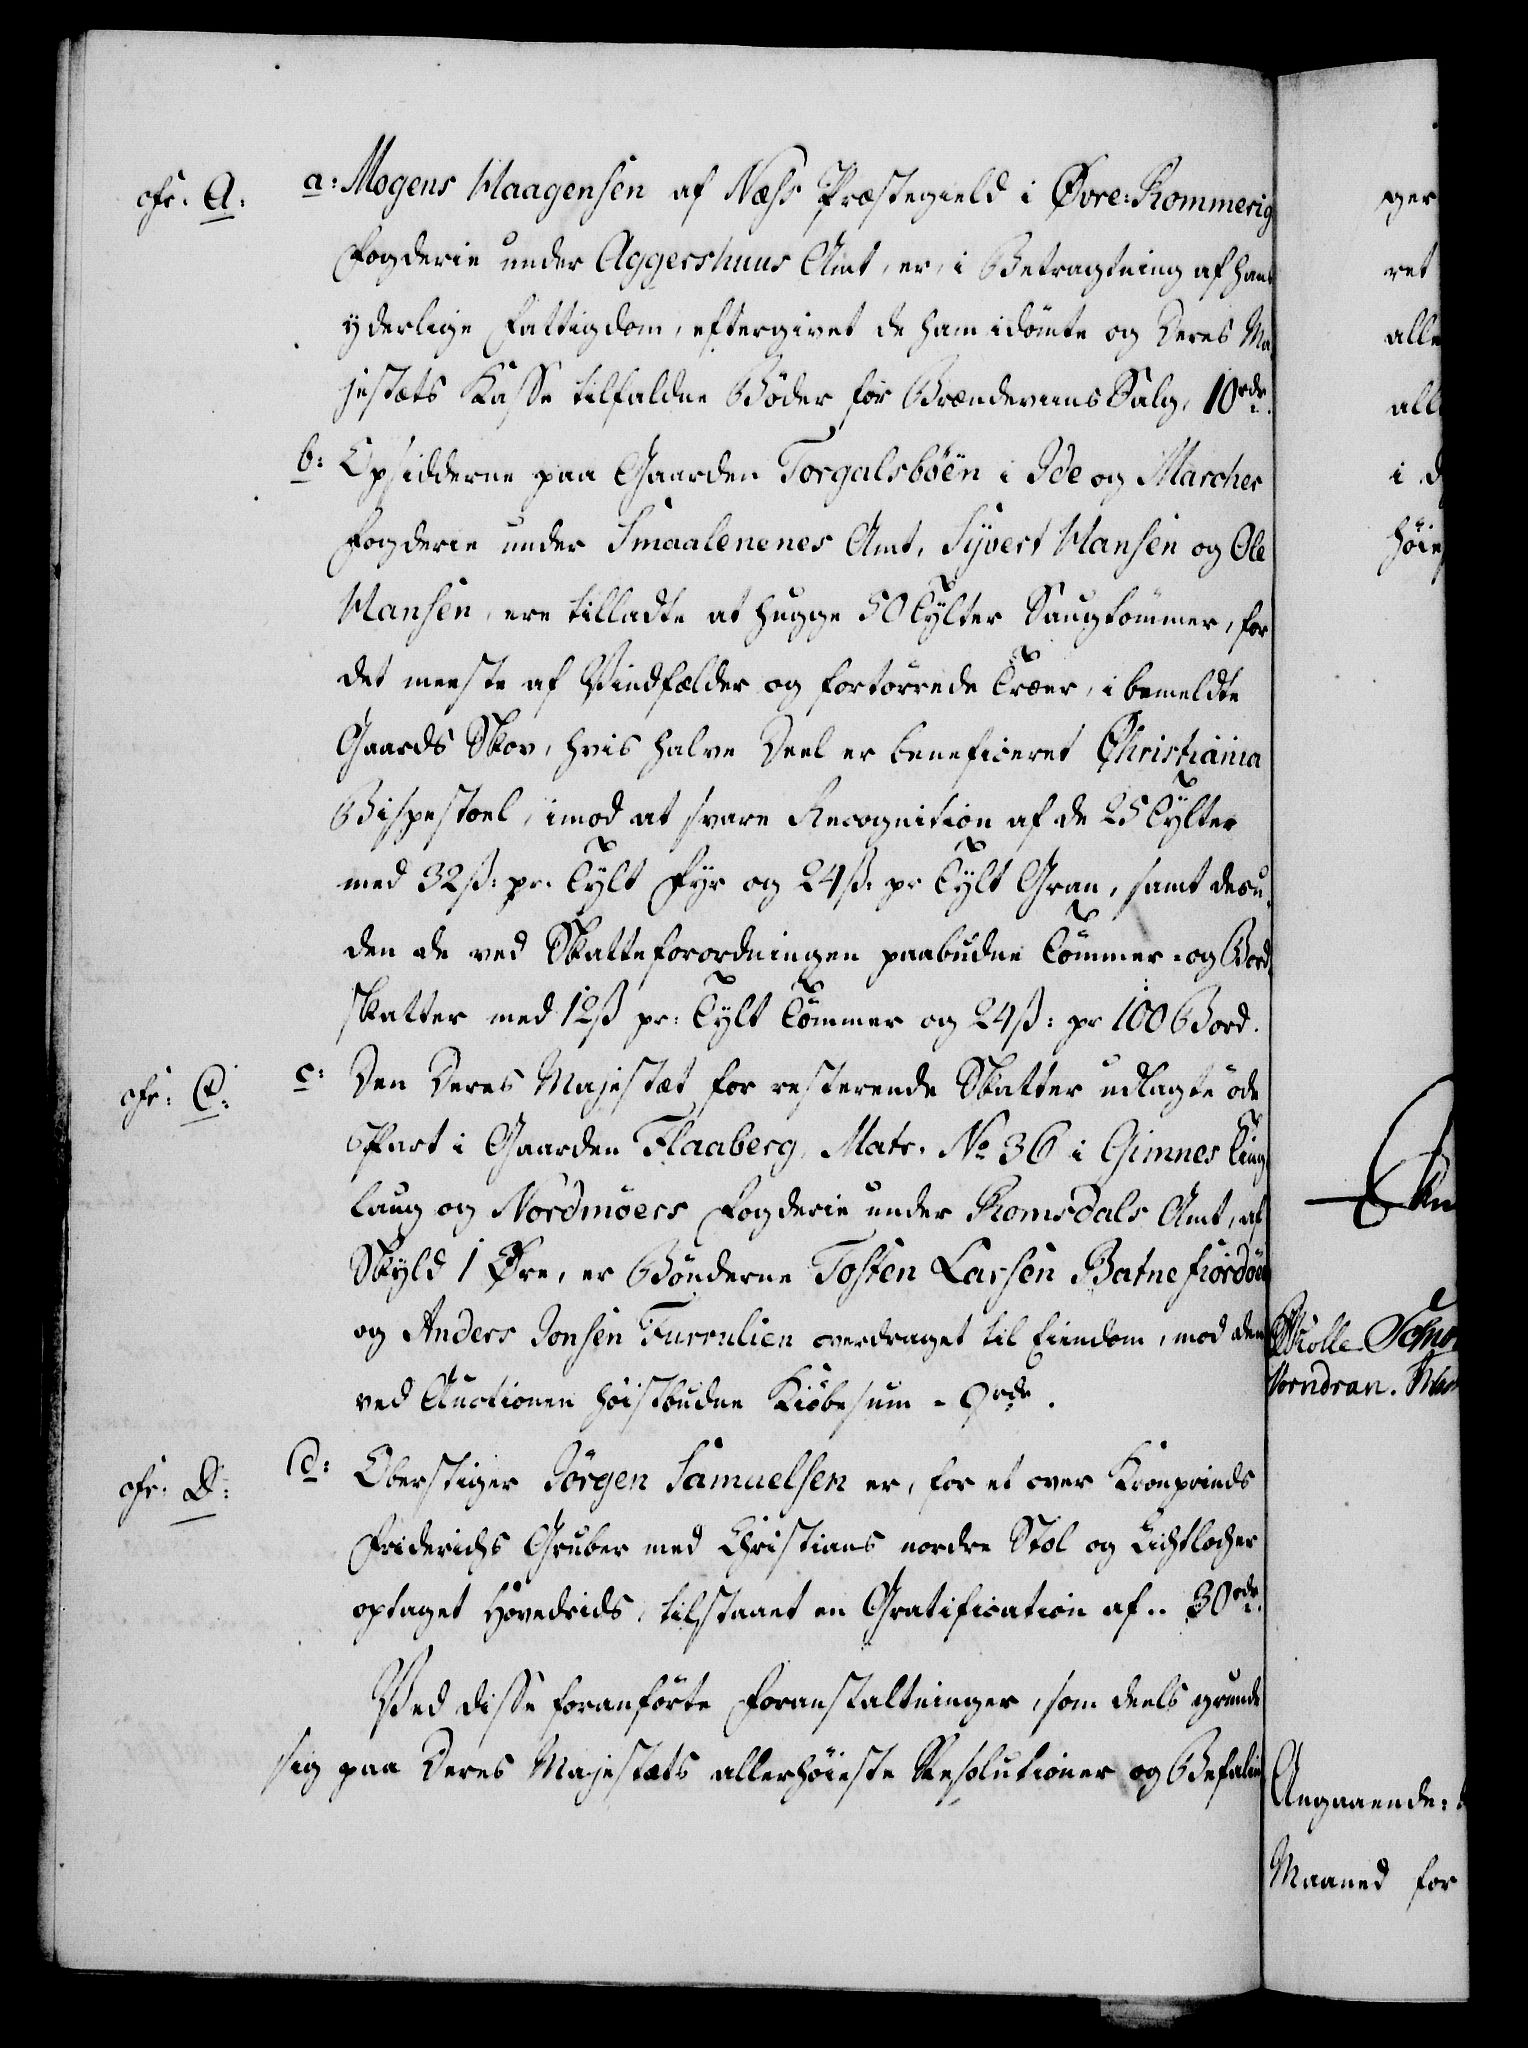 cfr. A:
a: Mogens Haagensen af Næss Præstegield i Øvre-Rommerig
Fogderie under Aggershuus Amt, er, i Betragtning af hans
yderlige Fattigdom, eftergivet de ham idömte og Deres Ma-
jestæts Kasse tilfaldne Böder for Brændeviins Salg, 10 rdr.
b: Opsidderne paa Gaarden Torgalsböen i Ide og Marcher
Fogderie under Smaalenenes Amt, Syvert Hansen og Ole
Hansen, ere tilladte at hugge 50 Tylter Saugtömmer, for
det meeste af Vindfælder og fortörrede Træer, i bemeldte
Gaards Skov, hvis halve Deel er beneficeret Christiania
Bispestoel, imod at svare Recognition af de 25 Tylter
med 32 ß: pr. Tylt Fyr og 24 ß: pr Tylt Gran, samt desu-
den de ved Skatteforordningen paabudne Tömmer- og Bord-
skatter med 12 ß pr: Tylt Tömmer og 24 ß: pr 100 Bord.
cfr: C:
c: Den Deres Majestæt for resterende Skatter udlagte öde
Part i Gaarden Flaaberg, Matr. No 36 i Gimnes Ting-
laug og Nordmöers Fogderie under Romsdals Amt, af
Skyld 1 Øre, er Bönderne Tosten Larsen Batnefiordöen
og Anders Jonsen Furrulien overdraget til Eiendom, mod den
ved Auctionen höistbudne Kiöbesum - 9 rdr.
cfr: D:
d: Oberstiger Jörgen Samuelsen er, for et over Kronprinds
Friderichs Gruber med Christians nordre Stol og Lichtlocher
optaget Hovedrids, tilstaaet en Gratification af.. 30 rdr.
Ved disse foranförte Foranstaltninger, som deels grunde
sig paa Deres Majestæts allerhöieste Resolutioner og Befalin-
ger
ret
alle
all
i D
höie
Skolle
Vorndran.
Angaaende:
Maaned for